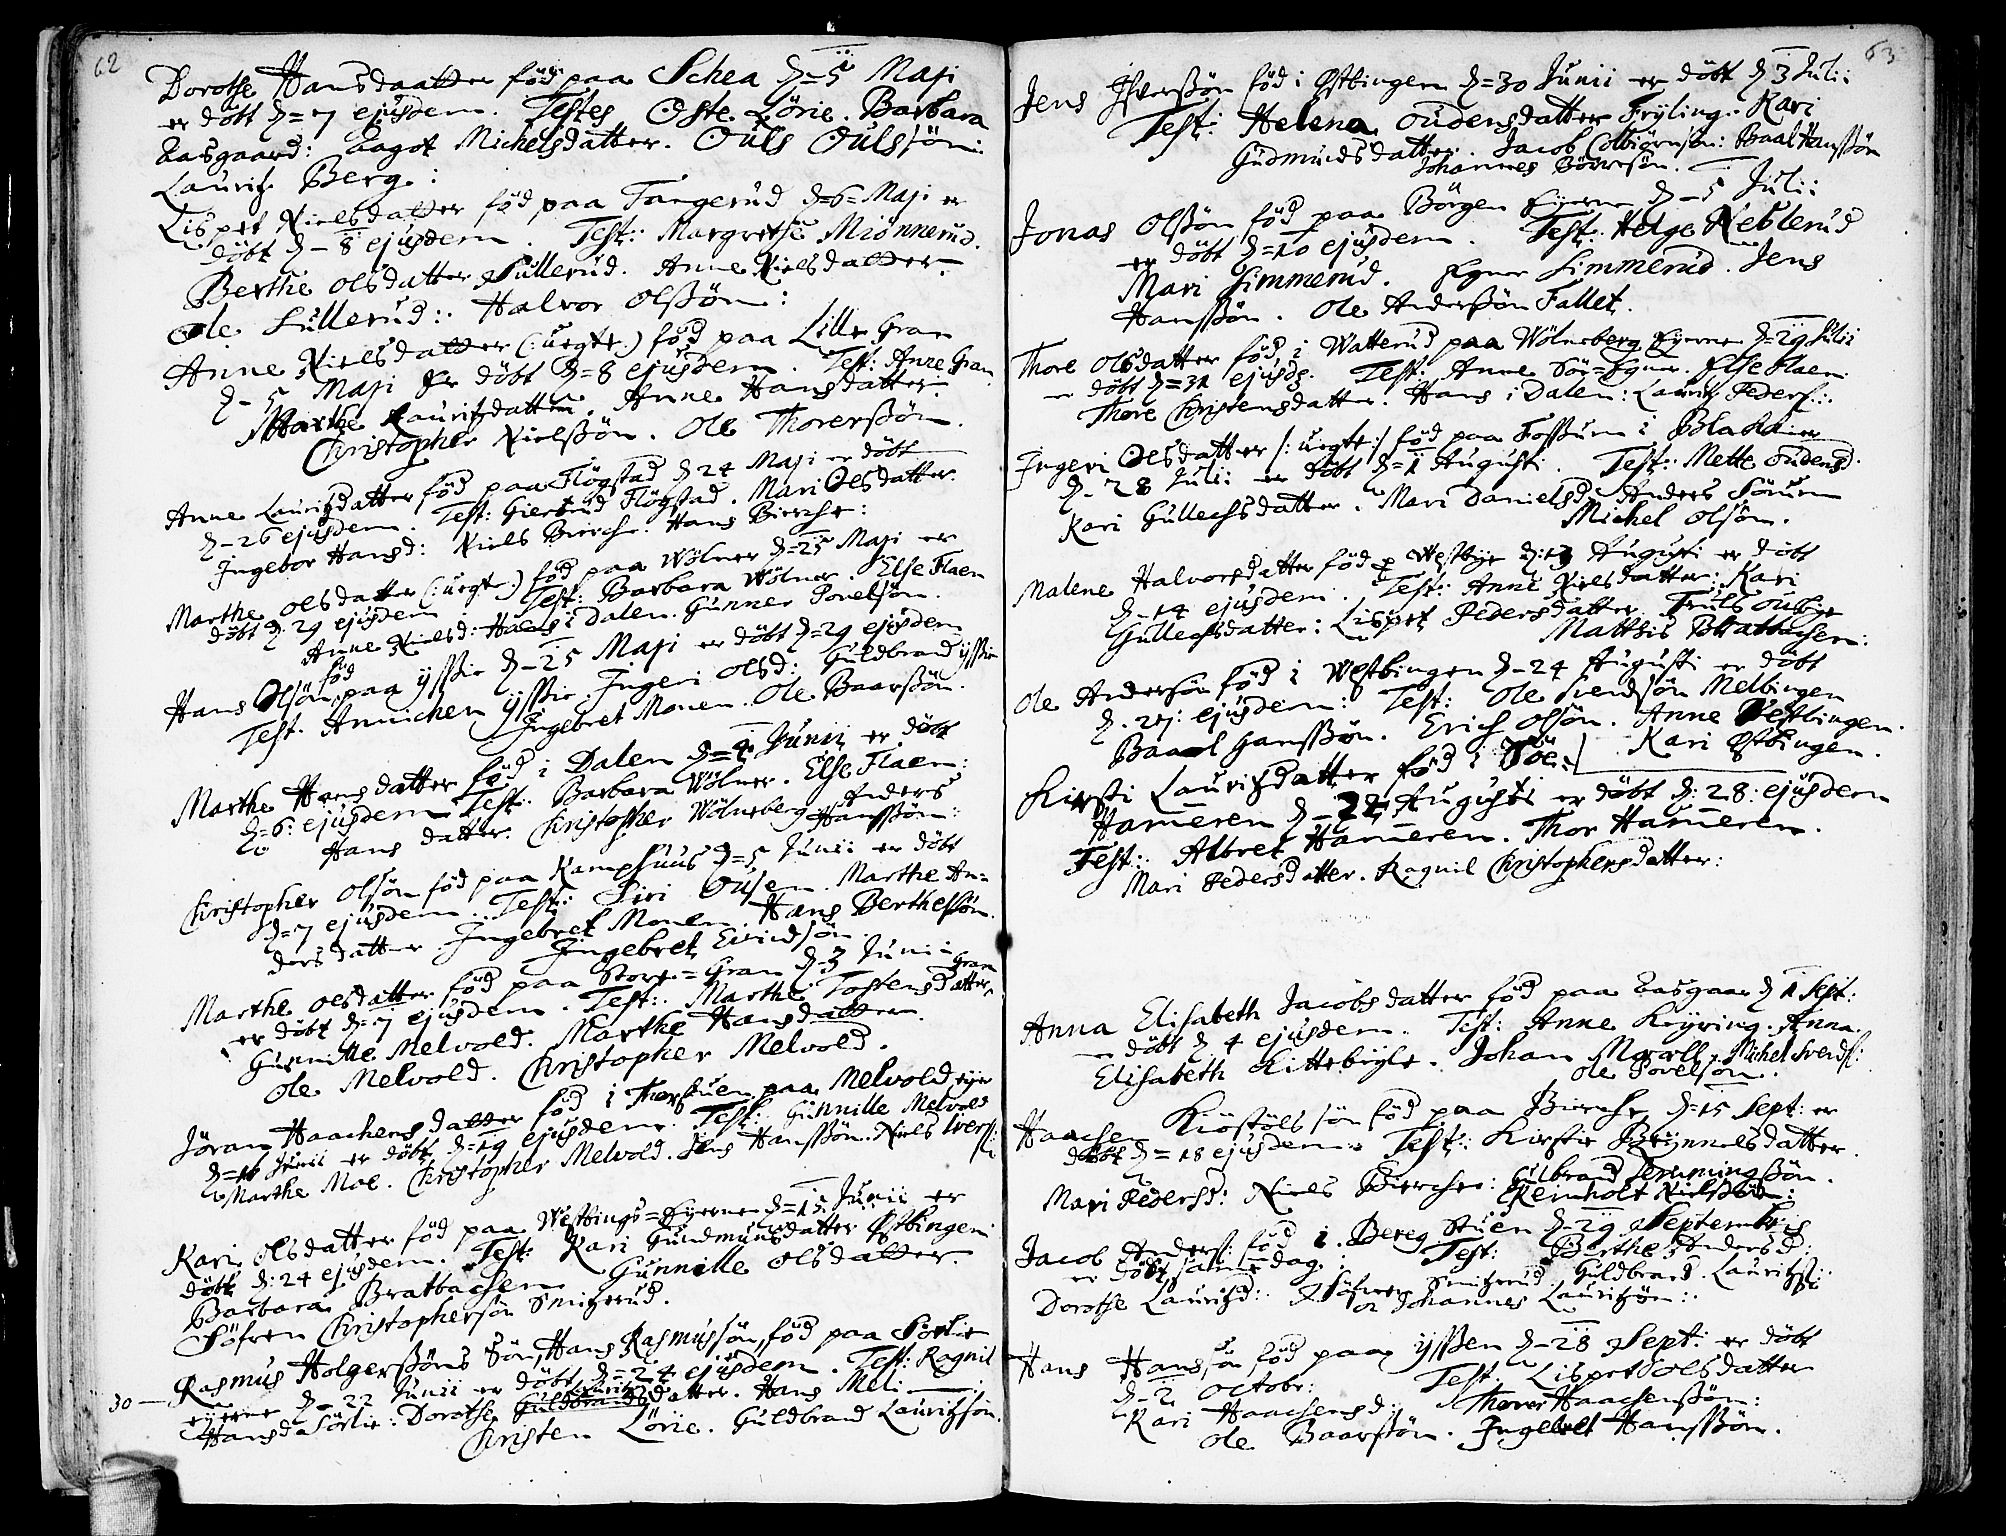 62
Dorothe Hansdaatter föd paa Schea d=5 Maji
er döbt d=7 ejusdem. Testes Oste Lörie. Barbara
Aasgaard: Aagot Michelsdatter. Ouls Oulssön:
Lauritz Berg:
Lispet Nielsdatter föd paa Tangerud d=6= Maji er
döbt d-8 ejusdem. Test: Margrethe Miönnerud.
Berthe Olsdatter Sullerud. Anne Nielsdatter.
Ole Sullerud: Halvor Olssön:
Anne Nielsdatter (: uegte:) föd paa Lille Gran
d-5 Maji Er döbt d=8 ejusdem. Test: Anne Gran
Marthe Lauritzdatter. Anne Hansdatter.
Christopher Nielssön. Ole Thorerssön.
Anne Lauritzdatter föd paa Flögstad d 24 Maji er döbt
d-26 ejusdem. Test: Giertrud Flögstad. Mari Olsdatter.
Ingebor Hansd: Niels Bierche: Hans Bierche:
Marthe Olsdatter (: uegt:) föd paa Wölner d=25 Maji er
döbt d. 29 ejusdem Test: Barbara Wölner. Else Flaen
Anne Nielsd: Hans i Dalen. Gunner Povelsön.
föd
Hans Olsön paa yssie d-25 Maji er döbt d=29 ejusdem
Test. Annichen yssie. Ingeri Olsd: Guldbrand yssie
Ingebret Monen. Ole Baarssön.
Marthe Hansdatter föd i Dalen d=4 Junii er döbt
d=6: ejusdem Test: Barbara Wölner. Else Flaen:
Hans datter. Christopher Wölneberg Anders
Hanssön:
Christopher Olsön föd paa Kamphuus d=5 Junii er döbt
d=7 ejusdem. Test: Siri Ousen. Marthe An=
dersdatter Ingebret Monen. Hans Berthessön.
Ingebret Eivindsön.
Marthe Olsdatter föd paa Store=Gran d-3 Junii
er döbt d=7 ejusdem. Test: Marthe Tostensdatter Gran
Gunnille Melvold. Marthe Hansdatter.
Ole Melvold. Christopher Melvold.
Jöran Haachensdatter föd i Thorstuen paa Melvold eje
d=16 Junii er döbt d=19 ejusdem. Test: Gunnille Melvold
Marthe Moe. Christopher Melvold. Jens Hanssön. Niels Iverss:
Kari Olsdatter föd paa Westbings=Eyerne d=15 Junii er
döbt d: 24 ejusdem. Test: Kari Gundmunsdatter Østbingen
Barbara Brattachsen Gunnille Olsdatter.
Söfren Christophersön Smitzerud.
Rasmus Holgerssöns Sön, Hans Rasmussön, föd paa Sörlie
30 — eyerne d-22 Junii er döbt d=24 ejusdem. Test: Ragnil
Hansd Sörlie: Dorothe Guldbrandsdatter. Hans Meli
Christen Lörie. Guldbrand Lauritzsön.
63
Jens Iverssön föd i Østbingen d=30 Junii er döbt d 3 Julii
Test: Helena Oudensdatter Fryling. Kari
Gudmundsdatter. Jacob Colbiörnsön: Baal Hanssön
Johannes Börresön.
Jonas Olssön föd paa Börgen Eyerne d-5 Julii
er döbt d=10 ejusdem. Test: Helge Neblerud
Mari Simmerud. Egner Simmerud. Jens
Hanssön. Ole Anderssön Fallet.
Thore Olsdatter föd i Watterud paa Wölneberg Eyerne d=29 Julii
er döbt d=31 ejusd. Test: Anne Sör=Egner. Else Flaen
Thore Christensdatter. Hans i Dalen: Lauritz Peders:
Ingeri Olsdatter /: uegte:/ föd paa Fossum i Blaker
d-28 Julii er döbt d=1 Augusti. Test: Mette Oudensd:
Kari Gullechsdatter. Mari Danielsd: Anders Sörum
Michel Olsön.
Malene Halvorsdatter föd p Westbye d:13 Augusti er döbt
d-14 ejusdem. Test: Anne Nielsdatter: Kari
Gullechsdatter: Lispet Pedersdatter. Truls Ousbye
Matthis Brattachsen:
Ole Andersön föd i Westbingen d-24 Augusti er döbt
d. 27: ejusdem: Test: Ole Svendsön Melbingen
Baal Hanssön. Erich Olsön. Anne Westbingen.
Kari Østbingen.
Kirsti Lauritzdatter föd i Söe:
Hameren d-22 Augusti er döbt d: 28: ejusdem
Test: Albret Hameren. Thor Hameren.
Mari Pedersdatter. Ragnil Christophersdatter:
Anna Elisabeth Jacobsdatter föd paa Aasgaar d 1 Sept:
er döbt d 4 ejusdem. Test: Anne Kryring. Anna
Elisabeth Kittebyle. Johan Morell. Michel Svends:
Ole Povelsön.
Haachen Kiöstöls sön föd paa Bierche d=15 Sept: er
döbt d=18 ejusdem. Test: Kirstie Brynnelsdatter.
Mari Pedersd: Niels Bierche: Gulbrand Flemmingssön.
Reinholt Nielssön:
Jacob Anders: föd i Bereg Stuen d-29 Septembris
er döbt samedag: Test: Berthe Andersd:
Dorothe Lauritzd: Söfren Smitzerud. Guldbrand Lauritzs:
Johannes Lauritzön:
Hans Hanssön föd paa yssen d-28 Sept: er döbt
d-2 Octobr: Test: Lispet Olsdatter
Kari Haachensd: Thorer Haachenssön:
Ole Baarssön. Ingebret Hanssön.